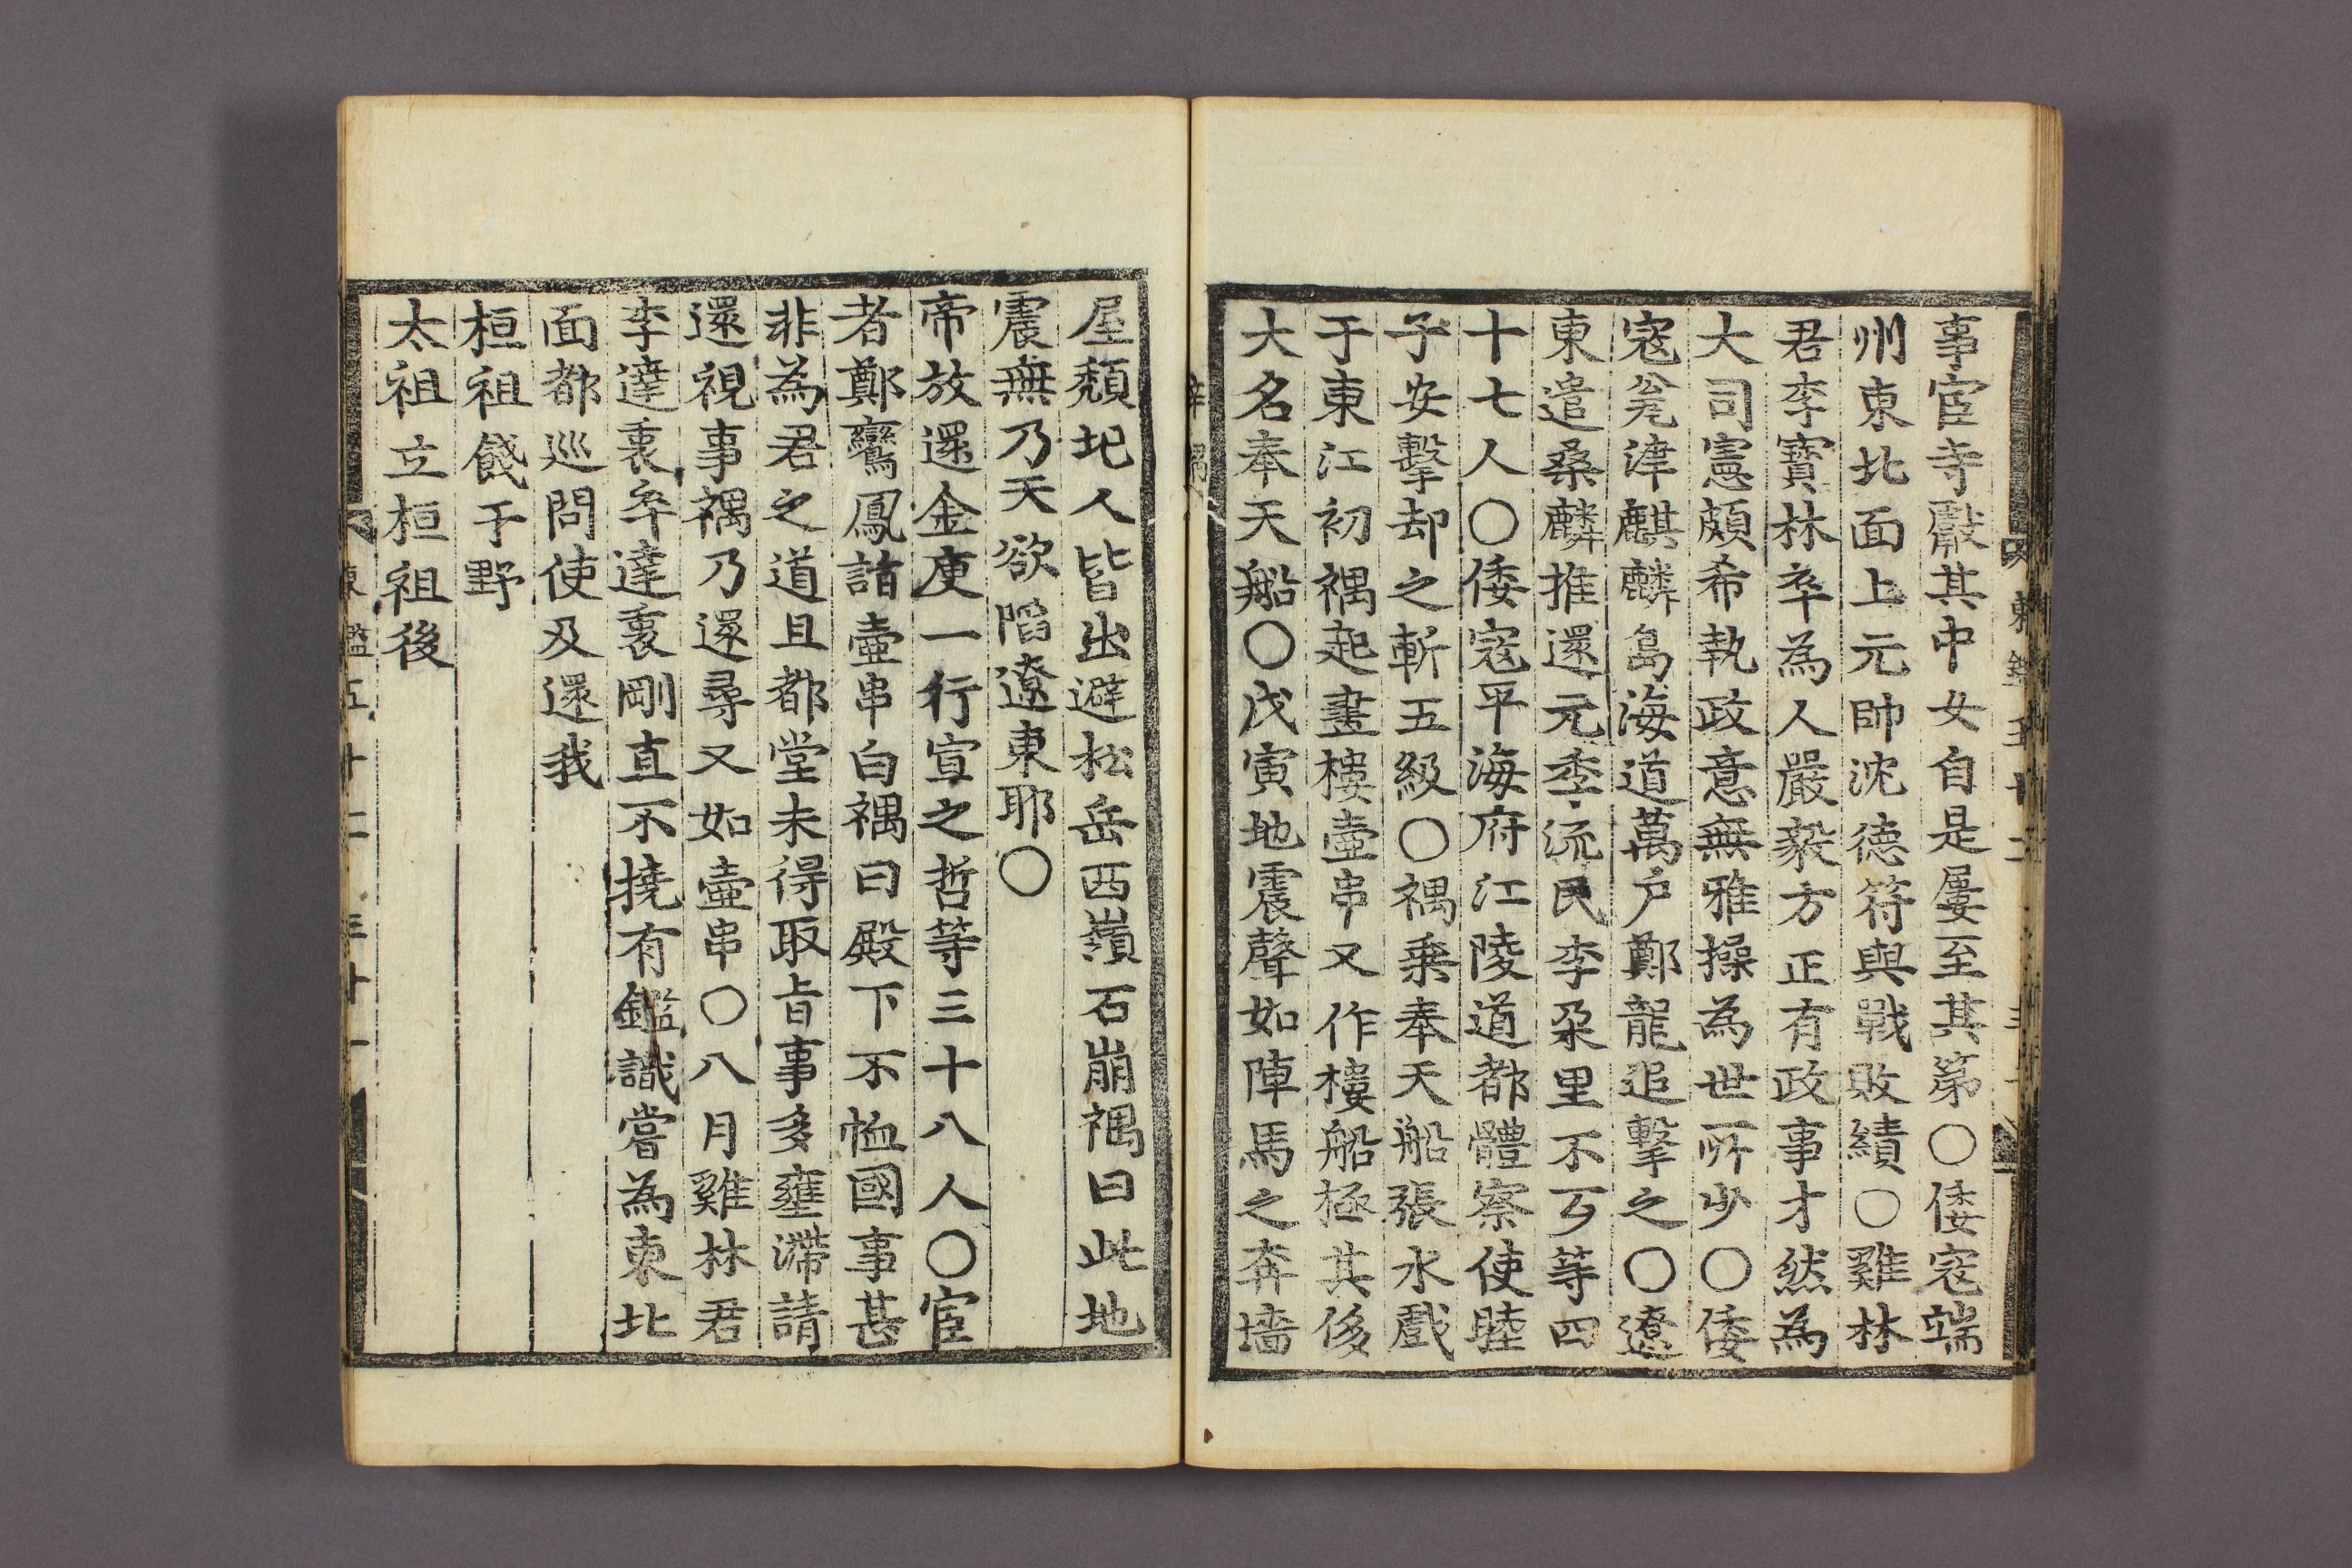 事宦寺嚴其中女自是屢至其第○倭寇端
州東北面上元帥沈德符與戰敗績○雞林
君李寶林卒為人嚴毅方正有政事才然為
大司憲頗希執政意無雅操為世所少○倭
寇瓮津麒麟島海道萬戶鄭龍追擊之○遼
東遣桑麟推還元季流民李朶里不歹等四
十七人○倭寇平海府江陵道都體察使睦
子安擊却之斬五級○禑乗奉天船張水戲
于東江初禑起畫樓壷串又作樓船極其侈
大名奉天船○戊寅地震聲如陣馬之奔墻
辛禑
屋頹圮人皆出避松岳西嶺石崩禑曰此地
震無乃天欲陷遼東耶○
帝放還金庾一行宣之哲等三十八人○宦
者鄭鸞鳳詣壷串白禑曰殿下不恤國事甚
非為君之道且都堂未得取旨事多壅滯請
還視事禑乃還尋又如壷串○八月雞林君
李達衷卒達衷剛直不撓有鑑識嘗為東北
面都巡問使及還我
桓祖餞于野
太祖立桓祖後
東鑑五十二 三十一